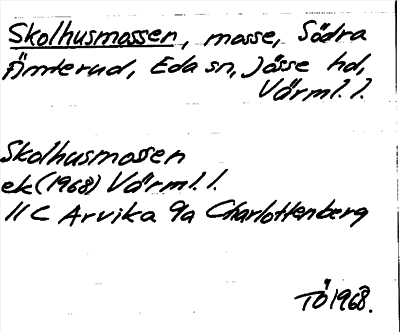 Skolhusmossen, mosse, Södra
Åmterud, Eda sn, Jösse hd,
Värml. l.
Skolhusmossen
ek (1968) Värml. l.
11 C Arvika 9a Charlottenberg
TÖ 1968.